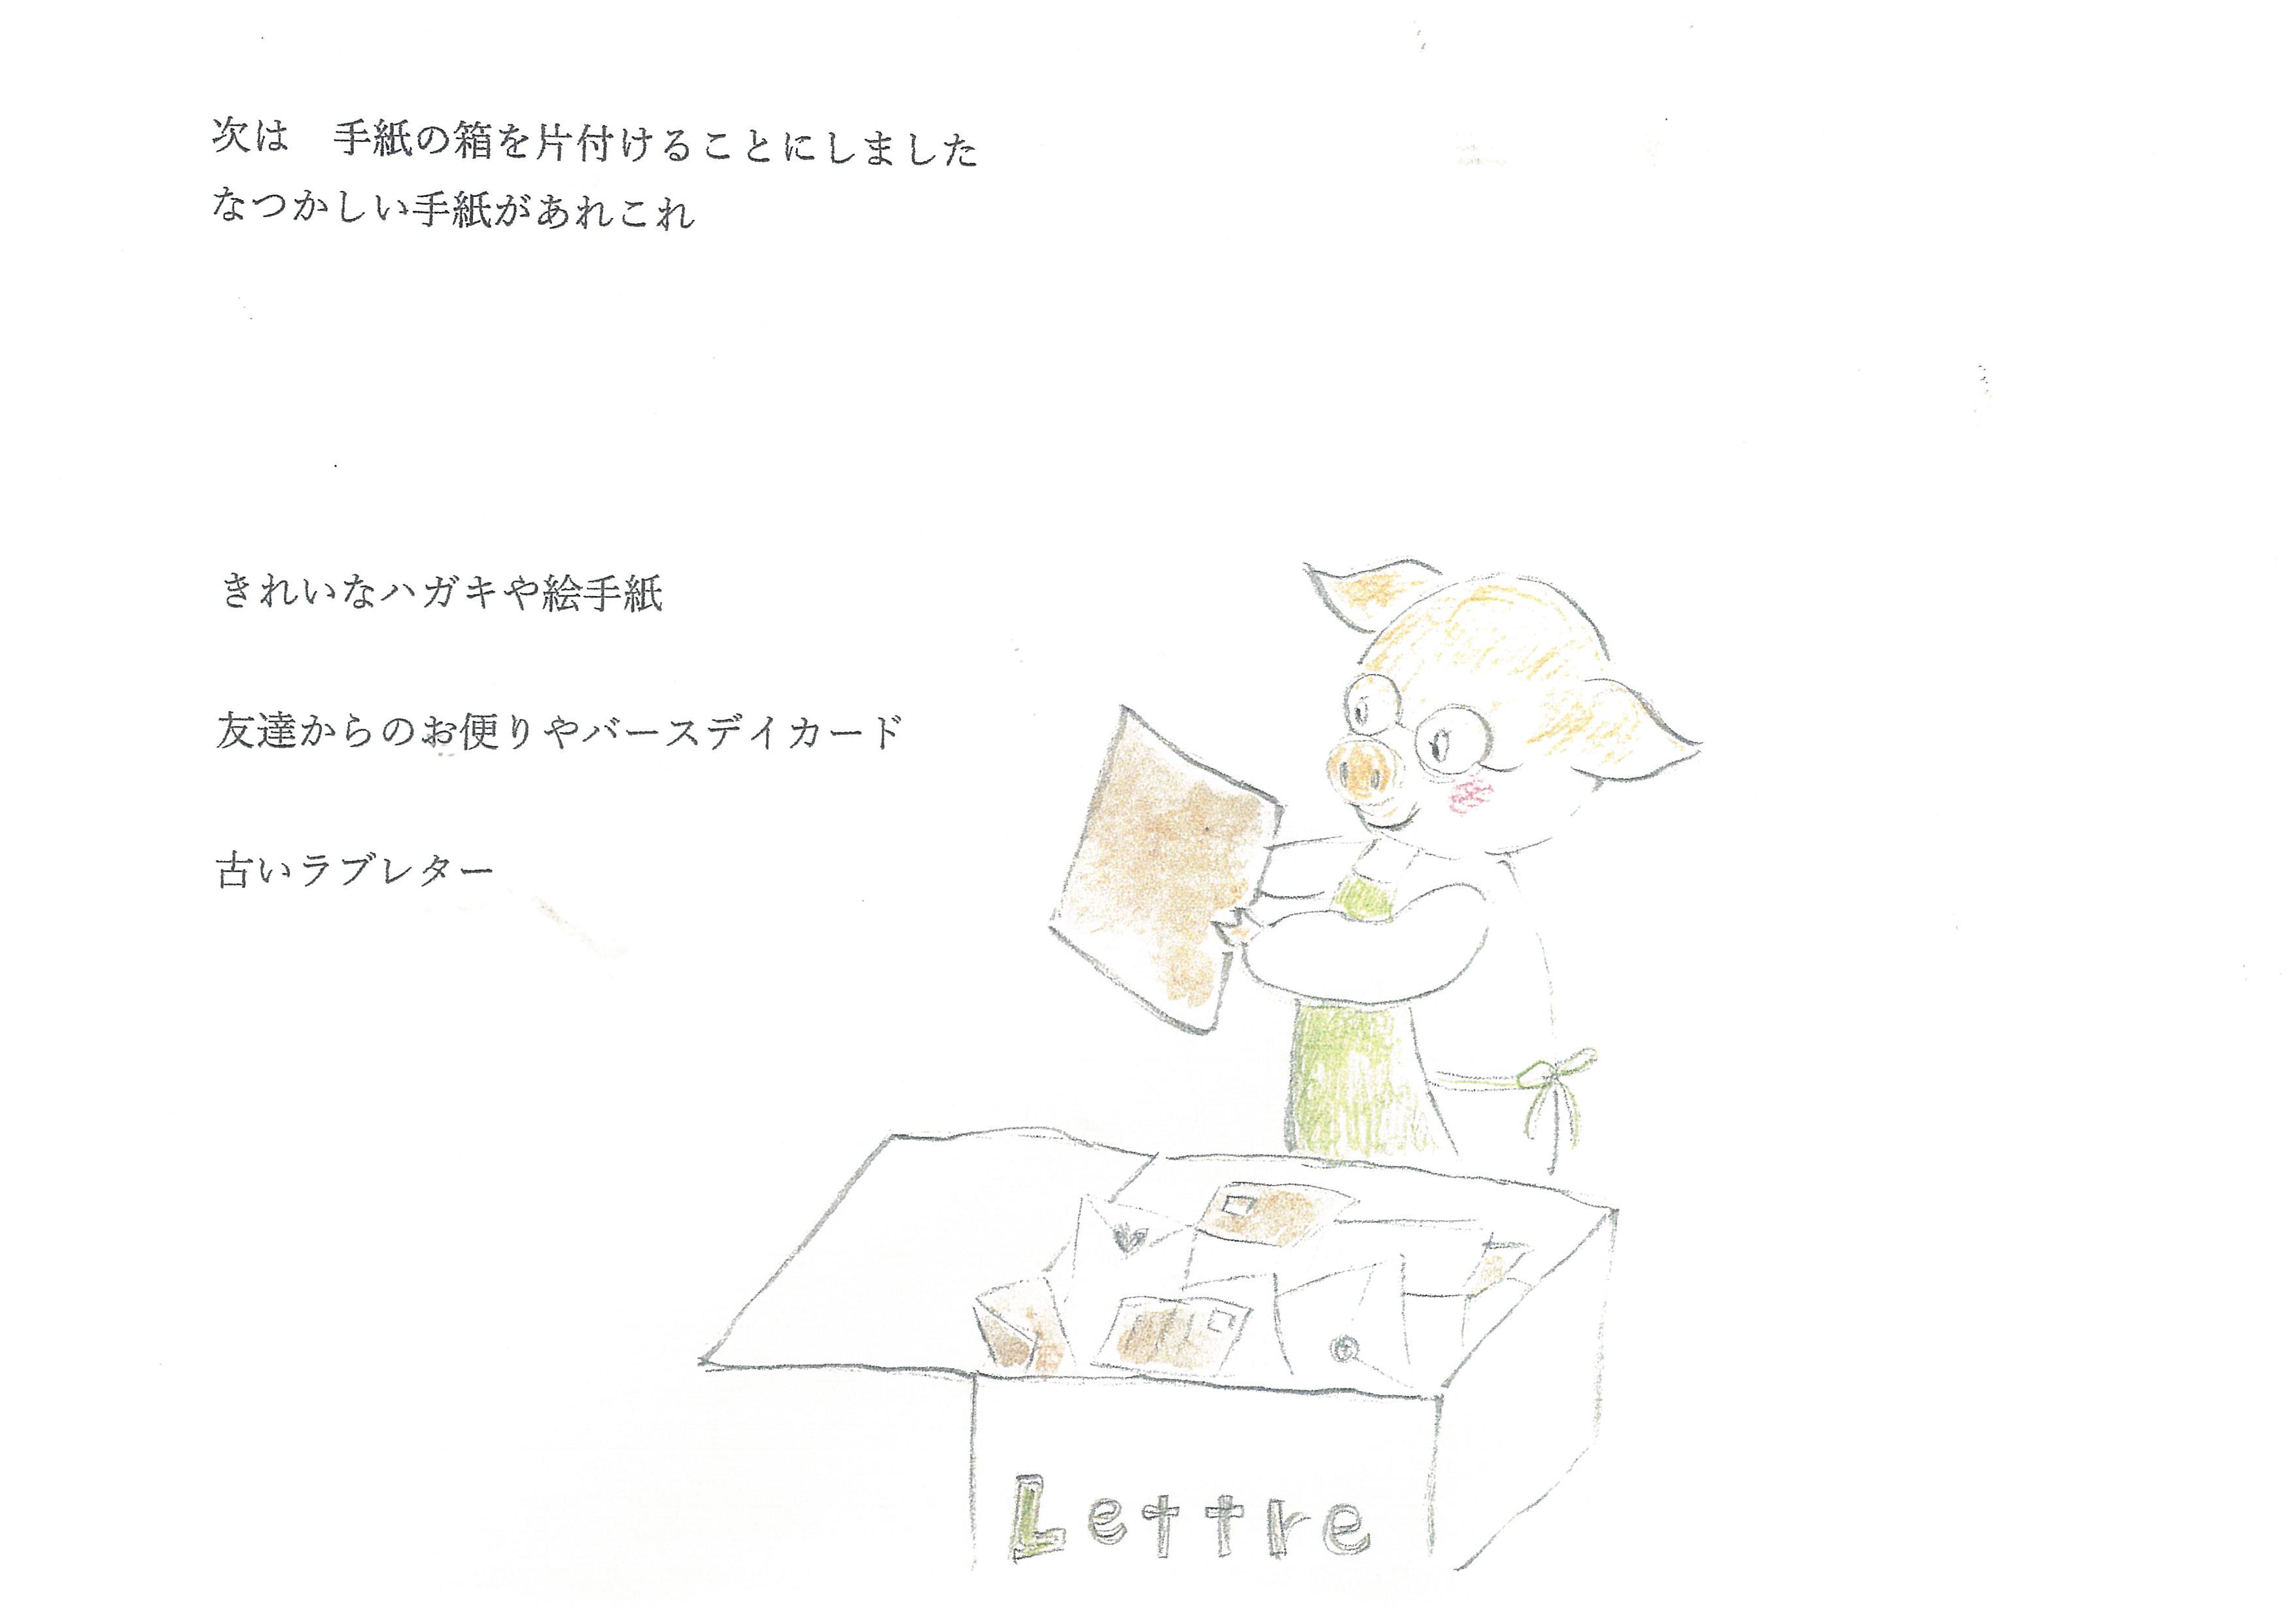 次は　手紙の箱を片付けることにしました
なつかしい手紙があれこれ
きれいなハガキや絵手紙
友達からのお便りやバースデイカード
古いラブレター
Lettre